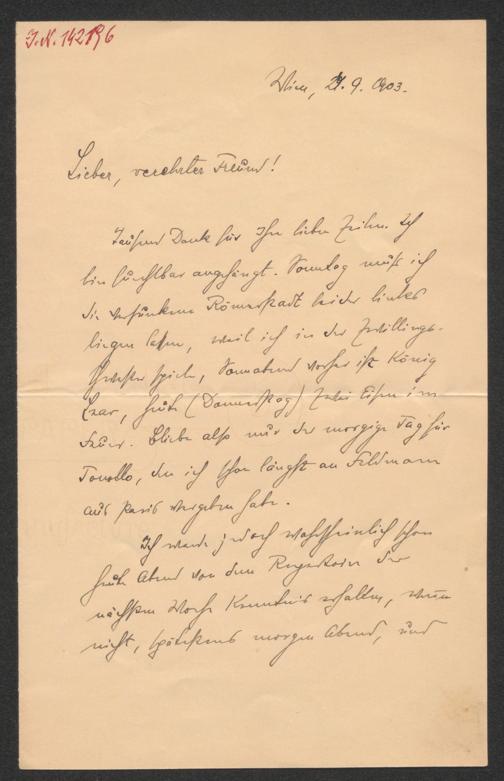 J.N. 142196
Wien, 24. 9. 1903.
Lieber, verehrter Freund!
Tausend Dank für Ihre lieben Zeilen. Ich
bin furchtbar angehängt. Sonntag muß ich
die versunkene Römerstadt leider links
liegen lassen, weil ich in der Zwillings-
schwester spiele, Sonnabend vorher ist König
Lear, heute (Donnerstag) Zwei Eisen im
Feuer. Bliebe also nur der morgige Tag für
den ich schon längst an Feldmann
aus Paris vergeben habe.
Ich werde jedoch wahrscheinlich schon
heute Abend von dem Repertoire der
nächsten Woche Kenntnis erhalten, wenn
nicht, spätestens morgen Abend, und